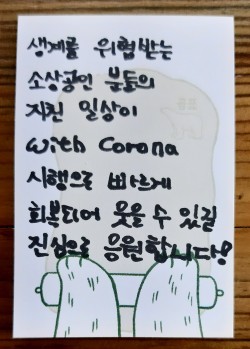 생계를 위협받는
소상공인 분들의
지친 일상이
with corona
시행으로 빠르게
회복되어 웃을 수 있길
진심으로 응원합니다!